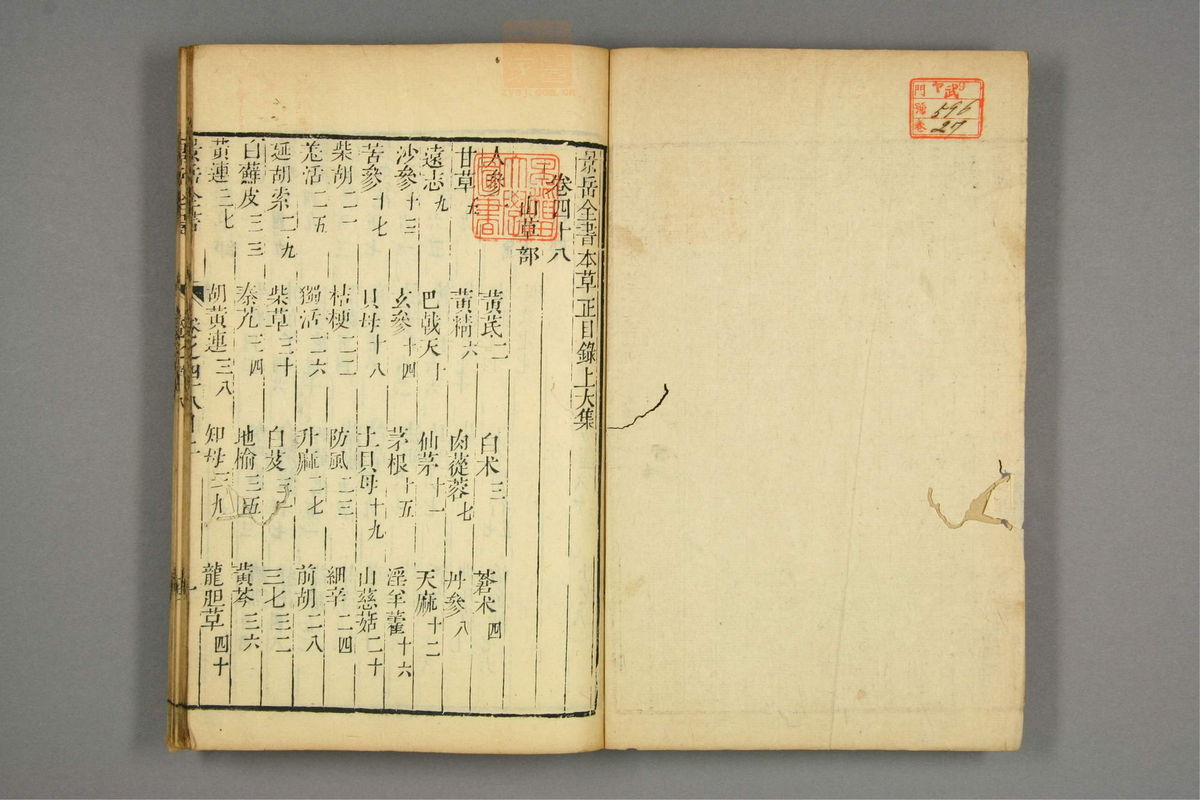 景岳全書本草正目錄上大集
卷四十八
山草部
人參一 黃芪二 白术三 蒼术四
甘草五 黃精六 肉蓯蓉七 丹參八
遠志九 巴戟天十 仙茅十一 天麻十二
沙參十三 玄參十四 茅根十五 淫羊藿十六
苦參十七 貝母十八 土貝母十九 山慈菇二十
柴胡二一 桔梗二二 防風二三 細辛二四
羗活二五 獨活二六 升麻二七 前胡二八
延胡索二九 柴草三十 白芨三一 三七三二
白蘚皮三三 秦艽三四 地榆三五 黃芩三六
黃連三七 胡黃連三八 知母三九 龍胆草四十
景岳全書
武
門
號 596
卷 27